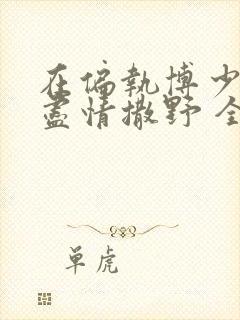 在偏執博少
盡情撒野 全
单虎